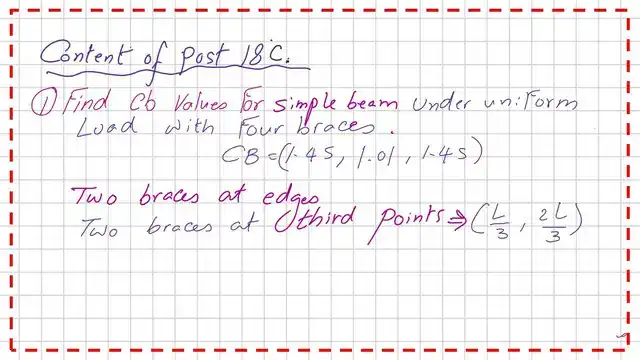 Content of Post 18c.
① Find Cb Values For simple beam under uniform
Load with Four braces.
CB=(1.45, 1.01, 1.45)
Two braces at edges
Two braces at third Points ⇒ (L/3, 2L/3)